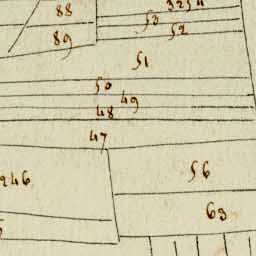 88
53
52
89
51
50
49
48
47
246
56
63